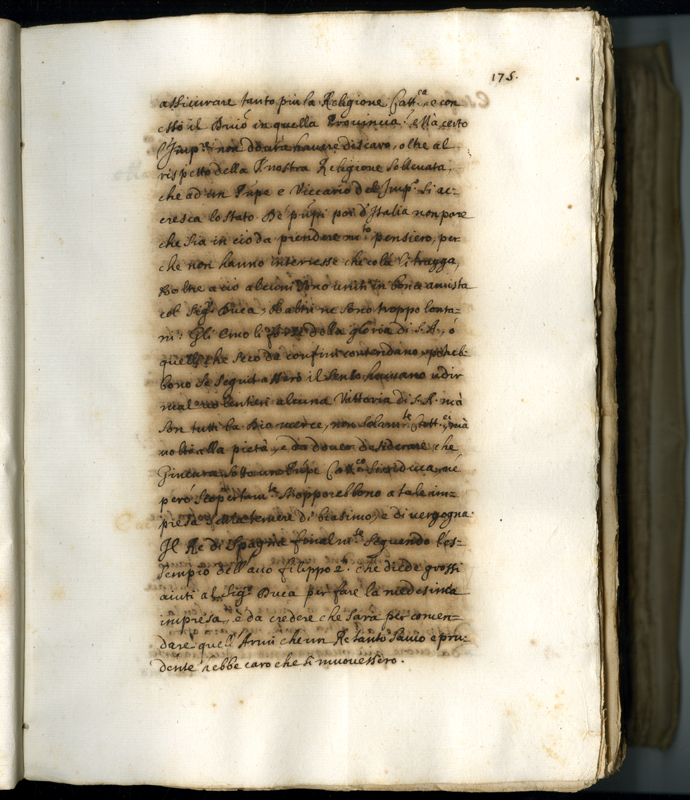 175.
assicurare tanto più la Religione Catt.ca, e con
esso il Divio in quella Provincia. Et Mà certo
l'Imp.re non dovrà havere discaro, oltre al
rispetto della nostra Religione sollevata,
che ad un Prpe e Viccario del Imp.o si ac-
cresca lo stato. De' pnpi poi d'Italia non pare
che sia in ciò da prendere m.to pensiero, per
che non hanno interesse che colà li tragga,
Et oltre a ciò alcuni sono uniti in bona amista
col Sig.r Duca, et altri ne sono troppo lonta-
ni: Gli Emoli della gloria di S. A., ò
quelli che seco de confini contendano, potreb-
bono se seguitassero il senso humano udir
mal volentieri alcuna Vittoria di S. A. mà
son tutti la Dio mercè, non solam.te Catt.ci, mà
volti alla pietà, e da dover desiderare che
Ginevra sotto un Prpe Catt.co si riduca, nè
però scopertam.te s'opporebbono a tale im-
presa senza temere di biasimo, e di vergogna.
Il Re di Spagna finalm.te seguendo l'es-
sempio dell'avo filippo 2.o che diede grossi
aiuti al Sig.r Duca per fare la medesima
impresa, è da credere che sarà per comen-
dare quell'Armi che un Re tanto savio e pru-
dente hebbe caro che si muovessero.